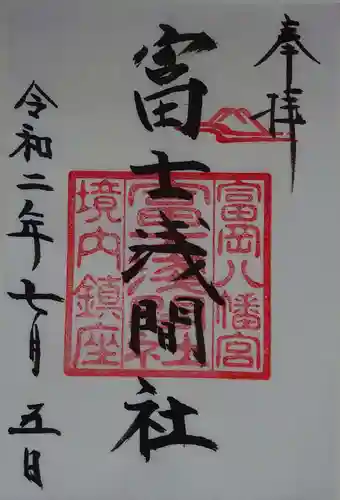 奉拝
富士浅間社
令和二年七月五日
富岡八幡宮
富士浅間社
境内鎮座